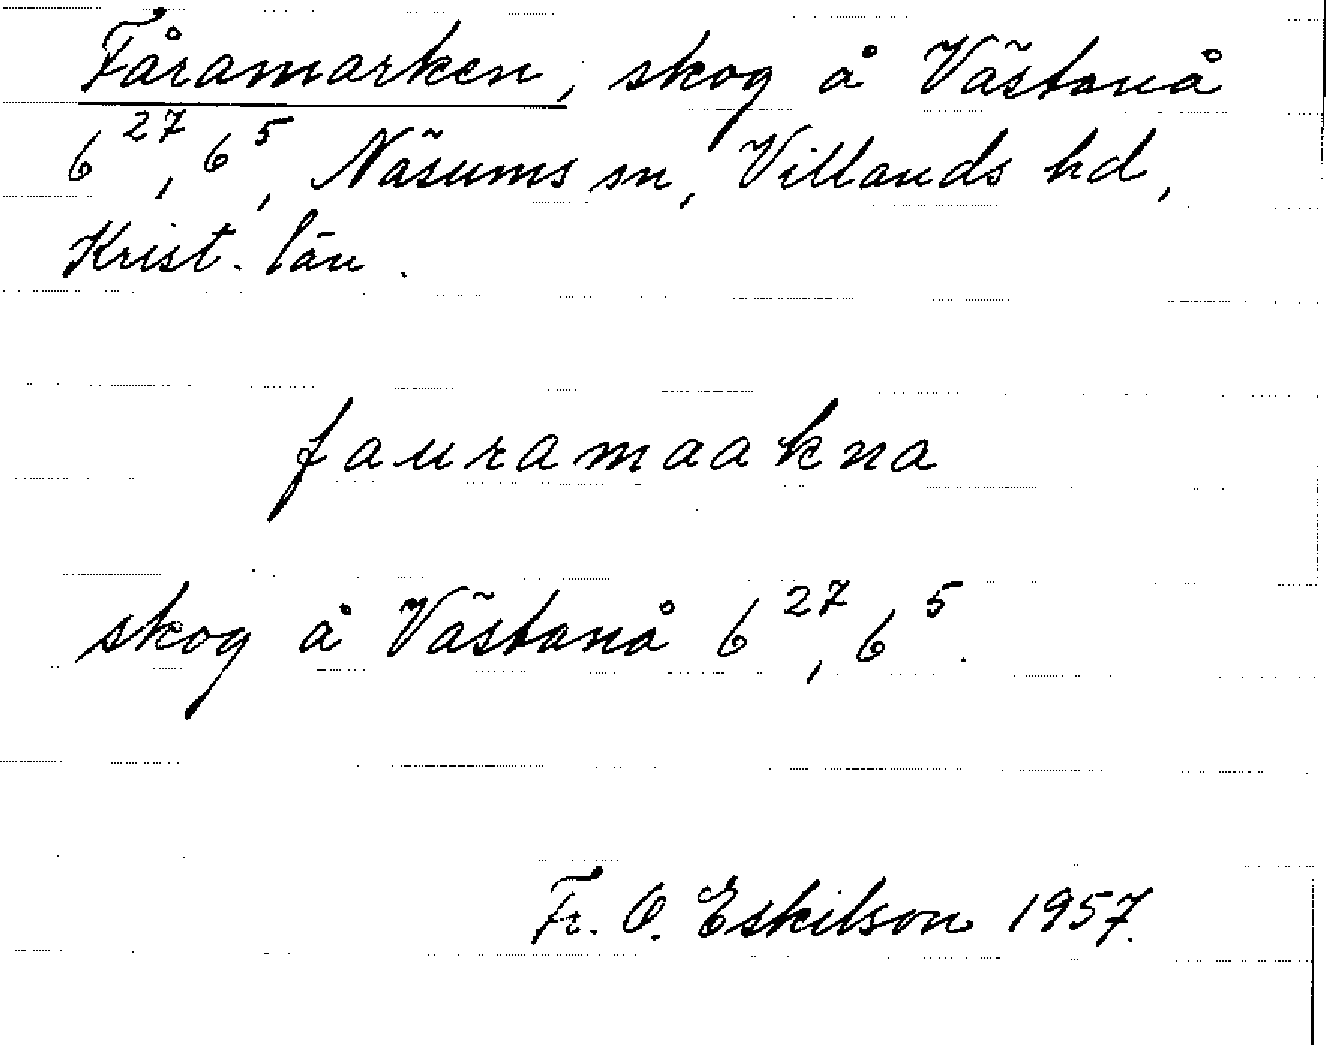 Fåramarken, skog å Västanå
6²⁷, 6⁵, Näsums sn, Villands hd,
Krist. län.
fauramaakna
skog å Västanå 6²⁷, 6⁵.
Fr. O. Eskilson 1957.